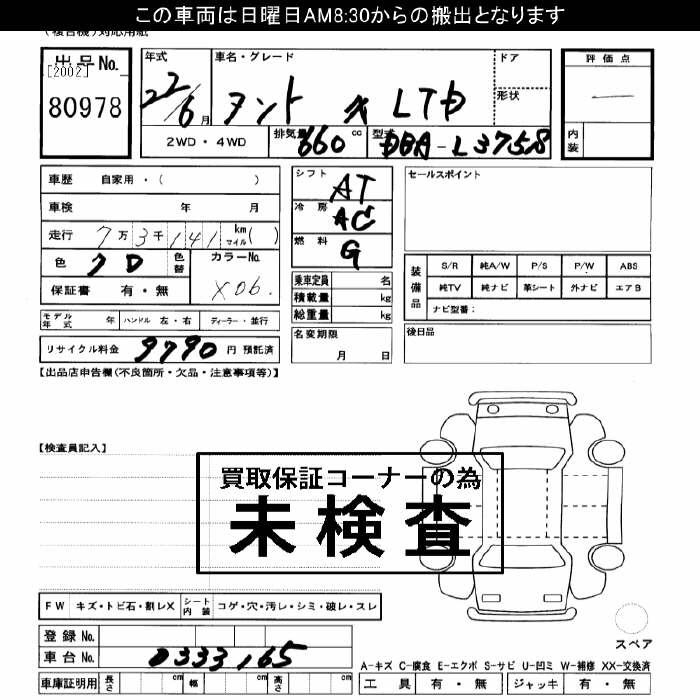 この車両は日曜日AM8:30からの搬出となります
(複合機)対応用紙
出品No.
[2002]
80978
年式
22/6月
車名・グレード
タント X LTD
ドア
形状
2WD・4WD
排気量 660 cc
型式 DBA-L375S
評価点
―
内装
車歴 自家用・( )
車検 年 月
走行 7万3千141 km マイル( )
色 クロ 色替
カラーNo. X06.
保証書 有・無
モデル年式 年 ハンドル 左・右 ディーラー・並行
リサイクル料金 9790 円 預託済
シフト AT
冷房 AC
燃料 G
乗車定員 名
積載量 kg
総重量 kg
名変期限 月 日
セールスポイント
装備品
S/R 純A/W P/S P/W ABS
純TV 純ナビ 革シート 外ナビ エアB
ナビ型番:
後日品
【出品店申告欄(不良箇所・欠品・注意事項等)】
【検査員記入】
買取保証コーナーの為
未検査
FW キズ・トビ石・割レX シート内装 コゲ・穴・汚レ・シミ・破レ・スレ
登録No.
車台No. 0333165
車庫証明用 長さ cm 幅 cm 高さ cm
スペア
A-キズ C-腐食 E-エクボ S-サビ U-凹ミ W-補修 XX-交換済
工具 有・無 ジャッキ 有・無